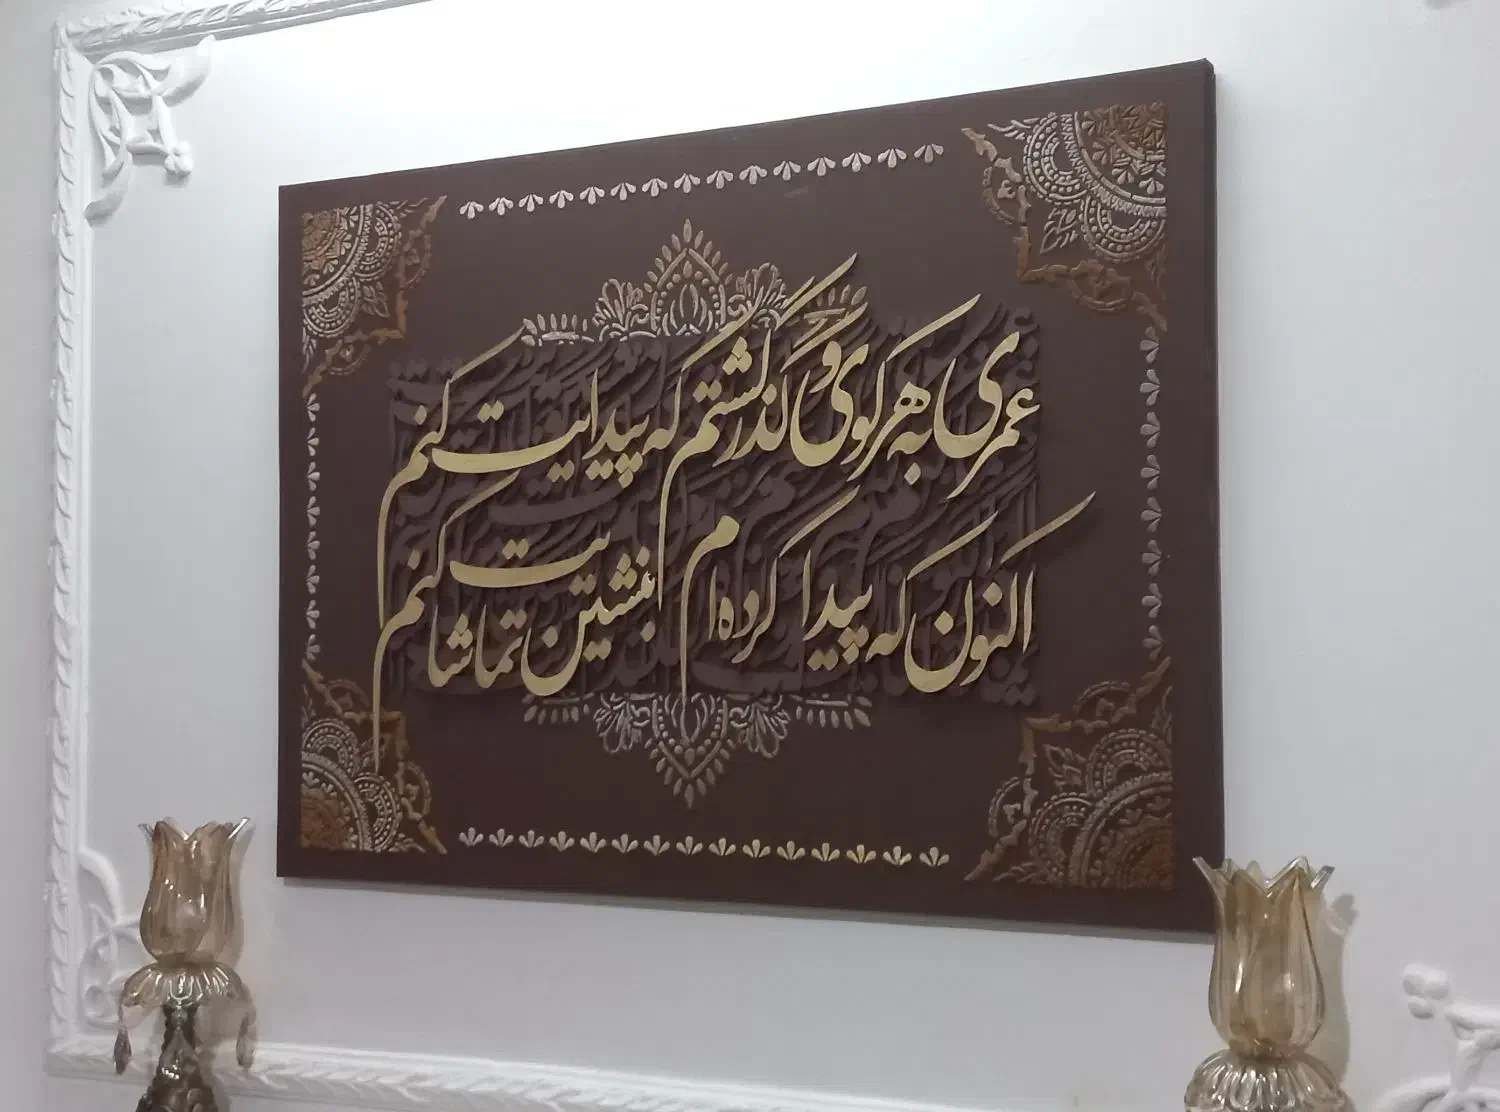 عمری به هر کوی و گذر گشتم که پیدایت کنم
اکنون که پیدا کرده‌ام بنشین تماشایت کنم